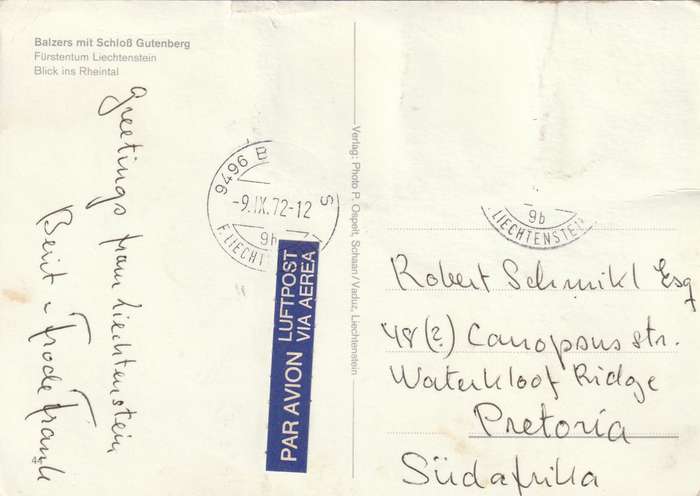 Balzers mit Schloß Gutenberg
Fürstentum Liechtenstein
Blick ins Rheintal
Greetings from Liechtenstein
Berit
Frode
44
9496 B S
-9.IX.72-12
9b
F.LIECHT
PAR AVION LUFTPOST
VIA AEREA
Verlag: Photo P. Ospelt, Schaan/Vaduz, Liechtenstein
9b
LIECHTENSTEIN
Robert Schmikl Esq
48(?) Canopous str.
Waterkloof Ridge
Pretoria
Südafrika